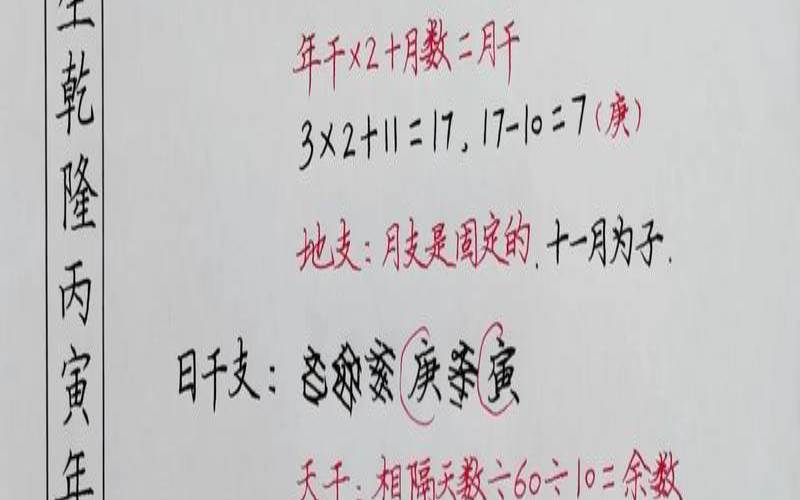 生乾隆丙寅年
年干×2+月数=月干
3×2+11=17,17-10=7(庚)
地支:月支是固定的.十一月为子.
日干支: 庚寅
天干:相隔天数÷60÷10=余数